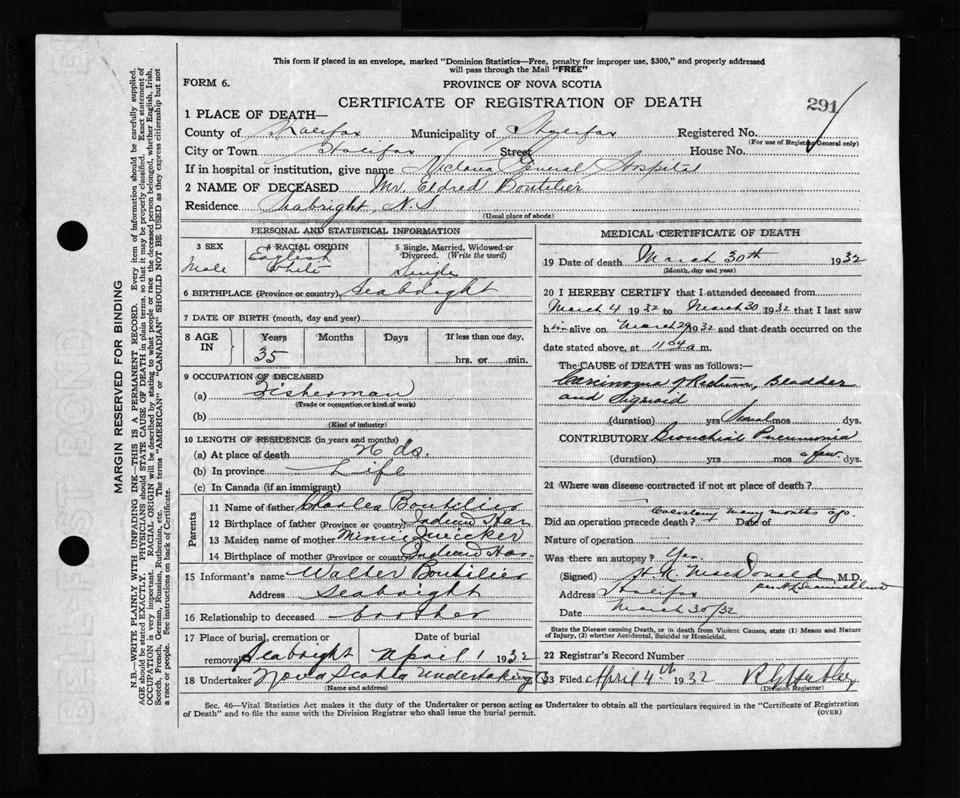 This form if placed in an envelope, marked "Dominion Statistics—Free, penalty for improper use, $300," and properly addressed
will pass through the Mail "FREE"
FORM 6.
PROVINCE OF NOVA SCOTIA
CERTIFICATE OF REGISTRATION OF DEATH
291
1 PLACE OF DEATH—
County of Halifax Municipality of Halifax Registered No.
(For use of Registrar General only)
City or Town Halifax Street House No.
If in hospital or institution, give name Victoria General Hospital
2 NAME OF DECEASED Mr. Eldred Boutilier
Residence Seabright, N.S
(Usual place of abode)
PERSONAL AND STATISTICAL INFORMATION
3 SEX
Male
4 RACIAL ORIGIN
English
White
5 Single, Married, Widowed or
Divorced. (Write the word)
Single
6 BIRTHPLACE (Province or country) Seabright
7 DATE OF BIRTH (month, day and year)
8 AGE IN
Years Months Days If less than one day,
35
hrs. or min.
9 OCCUPATION OF DECEASED
(a) Fisherman
(Trade or occupation or kind of work)
(b)
(Kind of industry)
10 LENGTH OF RESIDENCE (in years and months)
(a) At place of death 26 ds.
(b) In province Life
(c) In Canada (if an immigrant)
Parents
11 Name of father Charles Boutilier
12 Birthplace of father (Province or country) Indian Har
13 Maiden name of mother Minnie
14 Birthplace of mother (Province or country) Indian Har.
15 Informant's name Walter Boutilier
Address Seabright
16 Relationship to deceased brother
17 Place of burial, cremation or Date of burial
removal Seabright April 1 1932
18 Undertaker Nova Scotia Undertaking Co
(Name and address)
MEDICAL CERTIFICATE OF DEATH
19 Date of death March 30th 1932
(Month, day and year)
20 I HEREBY CERTIFY that I attended deceased from
March 4 1932 to March 30 1932 that I last saw
him alive on March 29 1932 and that death occurred on the
date stated above, at 11 04 a.m.
The CAUSE OF DEATH was as follows:—
Carcinoma of Rectum, Bladder
and Sigmoid
(duration) yrs Several mos dys.
CONTRIBUTORY Bronchial Pneumonia
(duration) yrs mos a few dys.
21 Where was disease contracted if not at place of death?
Colostomy many months ago.
Did an operation precede death? Date of
Nature of operation
Was there an autopsy? Yes.
(Signed) H. K. MacDonald, M.D.
Address Halifax
Date March 30/32
State the Disease causing Death, or in death from Violent Causes, state (1) Means and Nature
of Injury, (2) whether Accidental, Suicidal or Homicidal.
22 Registrar's Record Number
23 Filed April 4th 1932
(Division Registrar)
Sec. 46—Vital Statistics Act makes it the duty of the Undertaker or person acting as Undertaker to obtain all the particulars required in the "Certificate of Registration
of Death" and to file the same with the Division Registrar who shall issue the burial permit.
(OVER)
MARGIN RESERVED FOR BINDING
N.B.—WRITE PLAINLY WITH UNFADING INK—THIS IS A PERMANENT RECORD. Every item of information should be carefully supplied.
AGE should be stated EXACTLY. PHYSICIANS should STATE CAUSE OF DEATH in plain terms, so that it may be properly classified. Exact statement of
OCCUPATION is very important. RACIAL ORIGIN will be described by stating to what people or race the deceased person belonged, whether English, Irish,
Scotch, French, German, Russian, Ruthenian, etc. The terms "AMERICAN" or "CANADIAN" SHOULD NOT BE USED as they express citizenship but not
a race or people. See instructions on back of Certificate.